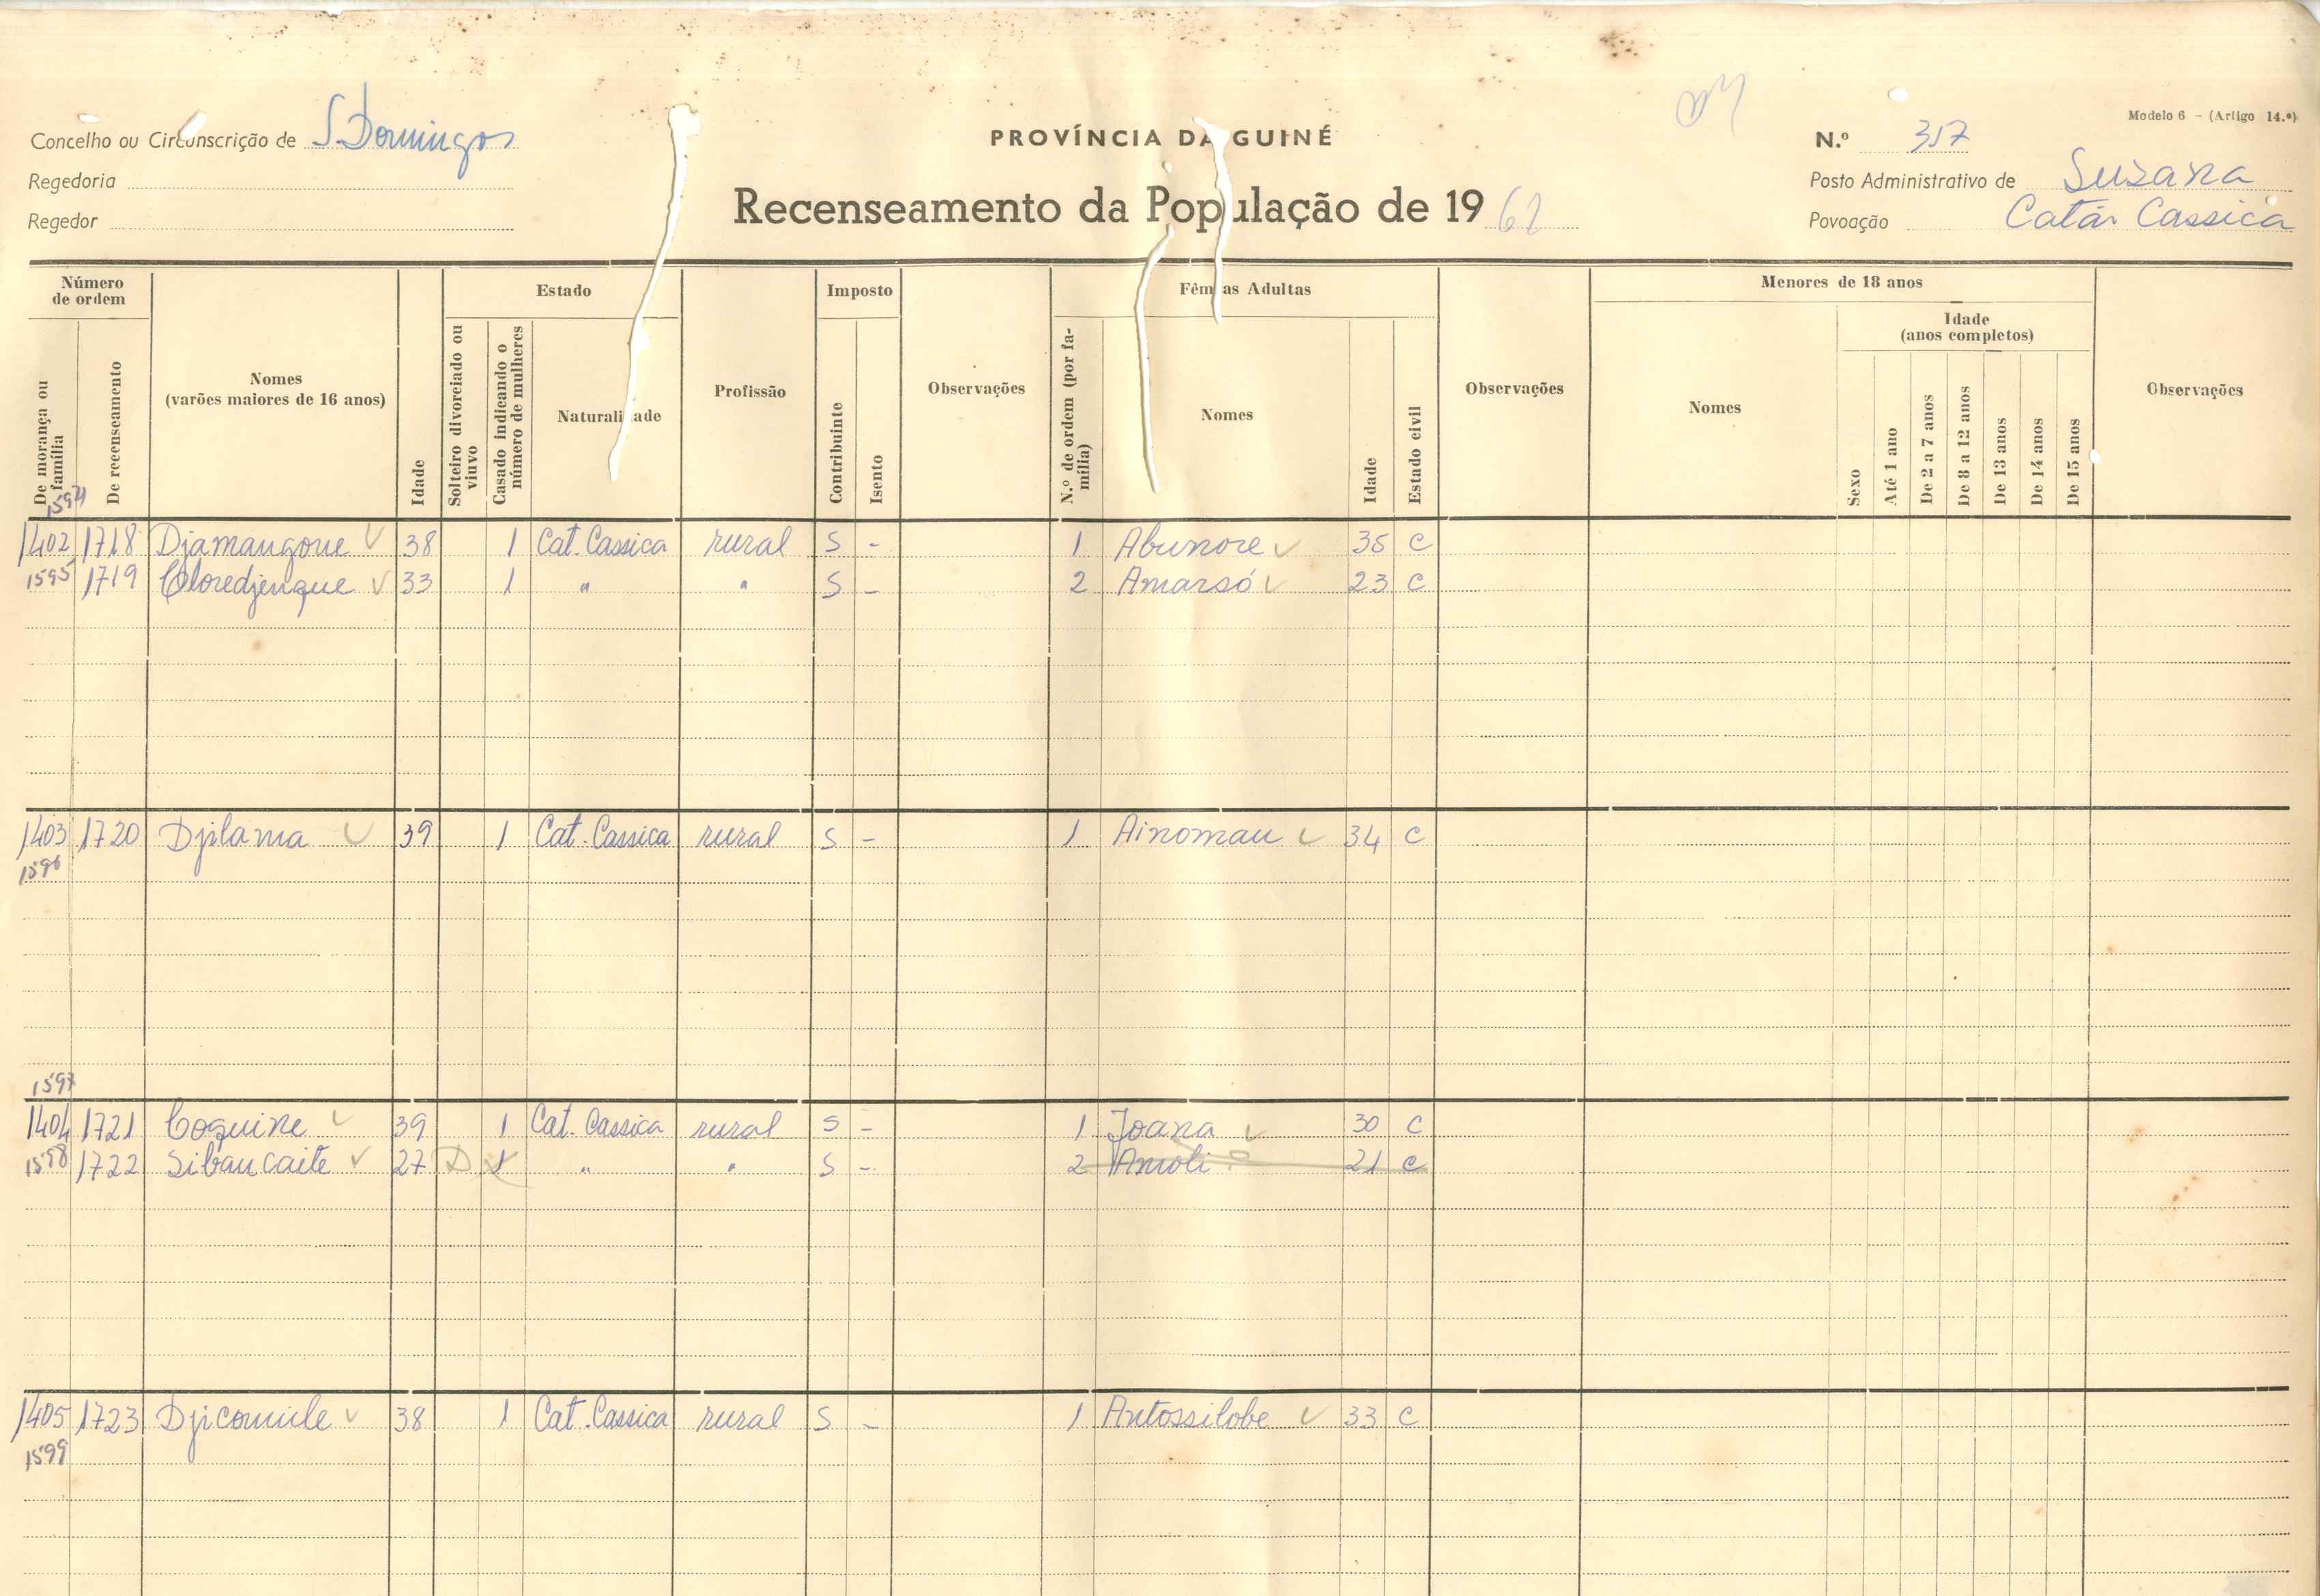 Modelo 6 - (Artigo 14.º)
Concelho ou Circunscrição de S. Domingos
PROVÍNCIA DA GUINÉ
N.º 317
Regedoria
Posto Administrativo de Suzana
Regedor
Recenseamento da População de 1962
Povoação Catán Cassica
Número de ordem
De morança ou família
De recenseamento
Nomes
(varões maiores de 16 anos)
Idade
Estado
Solteiro divorciado ou viuvo
Casado indicando o número de mulheres
Naturalidade
Profissão
Imposto
Contribuinte
Isento
Observações
Fêmeas Adultas
N.º de ordem (por família)
Nomes
Idade
Estado civil
Observações
Menores de 18 anos
Nomes
Idade
(anos completos)
Sexo
Até 1 ano
De 2 a 7 anos
De 8 a 12 anos
De 13 anos
De 14 anos
De 15 anos
Observações
1594
1402 1718 Djamangone 38 1 Cat. Cassica rural S - 1 Abunore 35 C
1595 1719 Cloredjenque 33 1 " " S - 2 Amarsó 23 C
1403 1720 Djilama 39 1 Cat. Cassica rural S - 1 Ainomau 34 C
1596
1597
1404 1721 Coquine 39 1 Cat. Cassica rural S - 1 Joana 30 C
1598 1722 Sibaucaite 27 D 1 " " S - 2 Amoli 21 C
1405 1723 Djicomule 38 1 Cat. Cassica rural S - 1 Antossilobe 33 C
1599